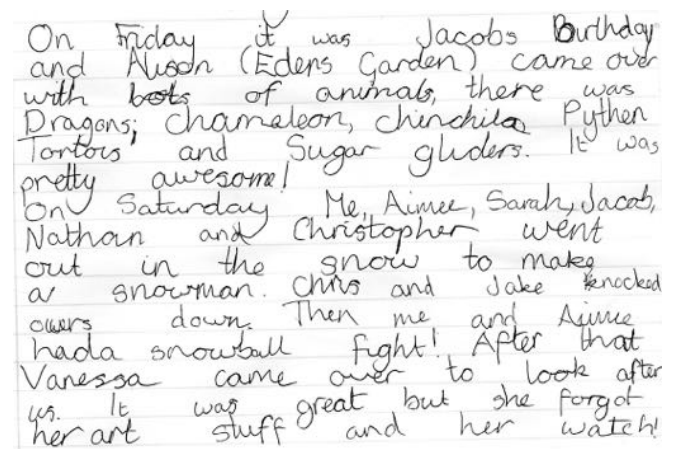 On Friday it was Jacobs Birthday
and Alison (Edens Garden) came over
with lots of animals, there was
Dragons, Chameleon, chinchila Python
Tortois and Sugar gliders. It was
pretty awesome!
On Saturday Me, Aimee, Sarah, Jacob,
Nathan and Christopher went
out in the snow to make
a snowman. Chris and Jake knocked
owers down. Then me and Aimee
had a snowball fight! After that
Vanessa came over to look after
us. It was great but she forgot
her art stuff and her watch!